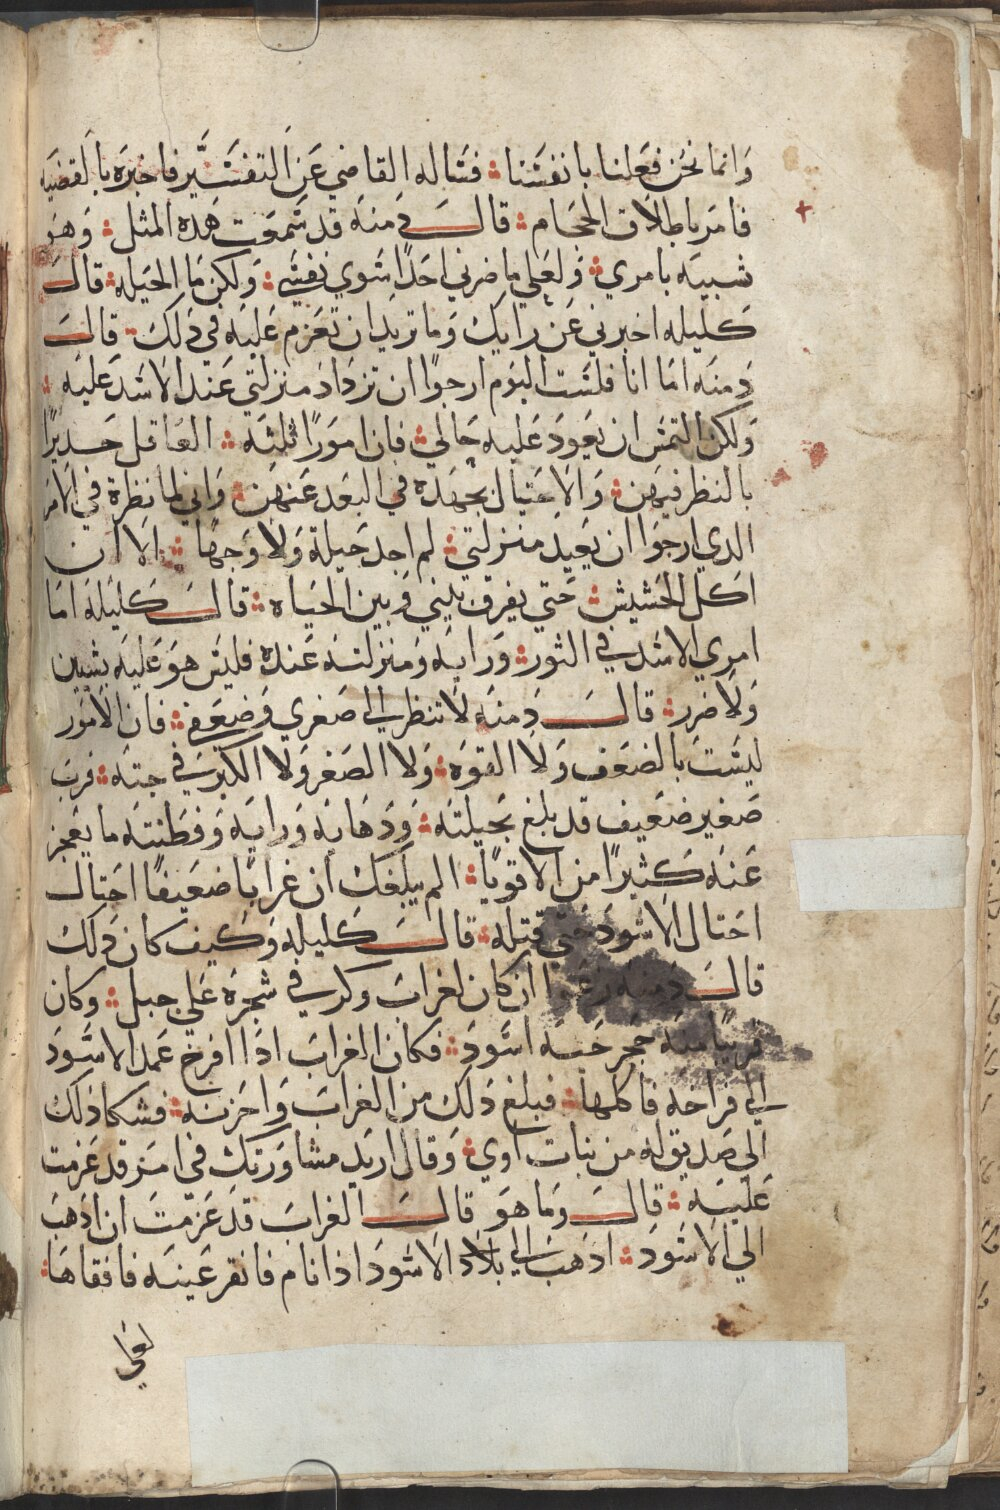 وانما نحن فعلنا بانفسنا ⁘ فساله القاضي عن التفسير فاخبره بالقضيه
فامر باطلاق الحجام ⁘ قال دمنه قد سمعت هذه المثل ⁘ وهو
شبيه بامري ⁘ ولعلي ما ضرني احدا سوي نفسي ⁘ ولكن ما الحيله ⁘ قال
كليله اخبرني عن رايك وما تريد ان تعزم عليه في ذلك ⁘ قال
دمنه اما انا فلست اليوم ارجوا ان تزداد منزلتي عند الاسد عليه ⁘
ولكن التمس ان يعود عليه حالي ⁘ فان امورا ثلثه ⁘ العاقل جديرا
بالنظر فيهن ⁘ والاحتيال بجهده في البعد عنهن ⁘ واني لما نظرة في الامر
الدي ارجوا ان يعيد منزلتي ⁘ لم اجد حيلة ولا وجها ⁘ الا ان
اكل الحشيش ⁘ حتي يفرق بيني وبين الحياه ⁘ قال كليله اما
امري الاسد في الثور ⁘ ورايه ومنزلته عنده فليس هو عليه بشين
ولا ضرر ⁘ قال دمنه لا تنظر الي صغري وضعفي ⁘ فان الامور
ليست بالضعف ولا القوه ⁘ ولا الصغر ولا الكبر في جته ⁘ فرب
صغير ضعيف قد بلغ بحيلته ⁘ ودهائه ورايه وفطنته ما يعجز
عنه كثيرا من الاقويا ⁘ الم يبلغك ان غرابا ضعيفا احتال
احتال الاسود حتي قتله ⁘ قال كليله وكيف كان ذلك
قال دمنه زعموا ان كان لغراب وكر في شجرة علي جبل ⁘ وكان
قريبا منه حجر حيه اسود ⁘ فكان الغراب اذا افرخ عمد الاسود
الي فراخه فاكلها ⁘ فبلغ ذلك من الغراب واحزنه ⁘ فشكا ذلك
الي صديق له من بنات اوي ⁘ وقال اريد مشاورتك في امر قد عزمت
عليه ⁘ قال وما هو قال الغراب قد عزمت ان اذهب
الي الاسود ⁘ اذهب الي بلاد الاسود اذا نام فانقر عينه فافقاها ⁘
لعلي